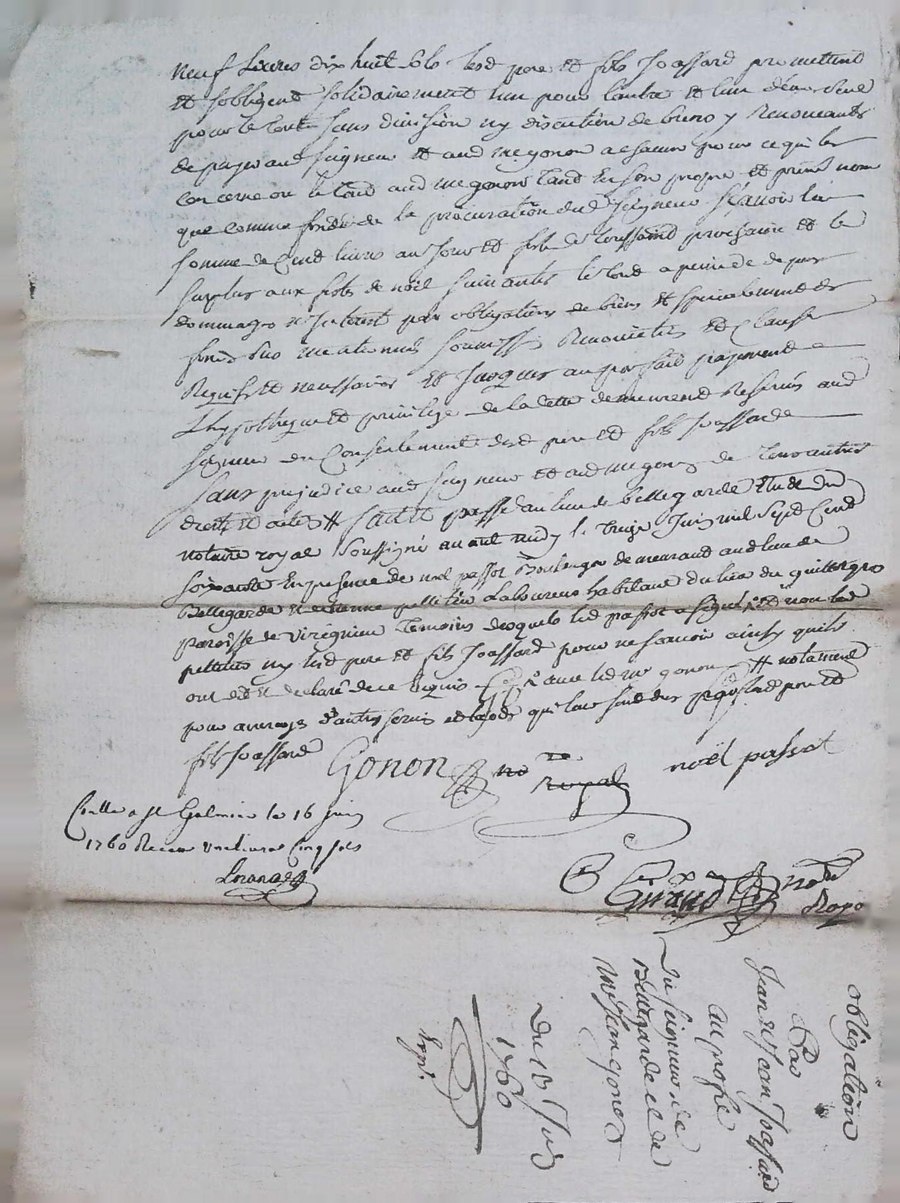 neuf livres dix huit sols lesd pere et fils Joassard promettent
et sobligent solidairement lun pour lautre et lun deux seul
pour le tout sans division ny discution de biens y renonceants
de payer aud seigneur et aud me gonon a chacun pour ce qui les
concerne ou le tout aud me gonon tant en son propre et privé nom
que comme fondé de la procuration dud seigneur sçavoir la
somme de cent livres au jour et fete de toussaint prochain et le
surplus aux fetes de noël suivantes le tout a peine de
dommages interest par obligations de biens et specialement des
fonds sus mentionnés soumiss renonciations et clauses
requises et necessaires et jusques au parfait payement
lhypotheque et privilege de la dette demeurent reservés aud
seigneur du consentement desd pere et fils Joassard
sans prejudice aud seigneur et aud me gonon de leurs autres
droits et actes # fait et passé au lieu de bellegarde etude du
notaire royal soussigné avant midy le treize Juin mil sept cent
soixante en presence de noel passot boulenger demeurant aud lieu de
Bellegarde et etienne laboureur habitant du lieu du
paroisse de virignieu temoins desquels led passot a signé et non led
ny lesd pere et fils Joassard pour ne sçavoir ainsy quils
ont dit et declaré de ce requis avec led me gonon # notament
pour arrerages dautres servis et laods qui leur sont dus par lesd pere et
fils Joassard
Gonon no re Royal noël passot
Conlle a st Galmier le 16 juin
1760 Receu une livre cinq sols
Giraud nore Royal
obligation
Par
Jean et Jean Joassard
au profit
Du seigneur de
Bellegarde et de
me Jean gonon
Du 13 Juin
1760
Exp.